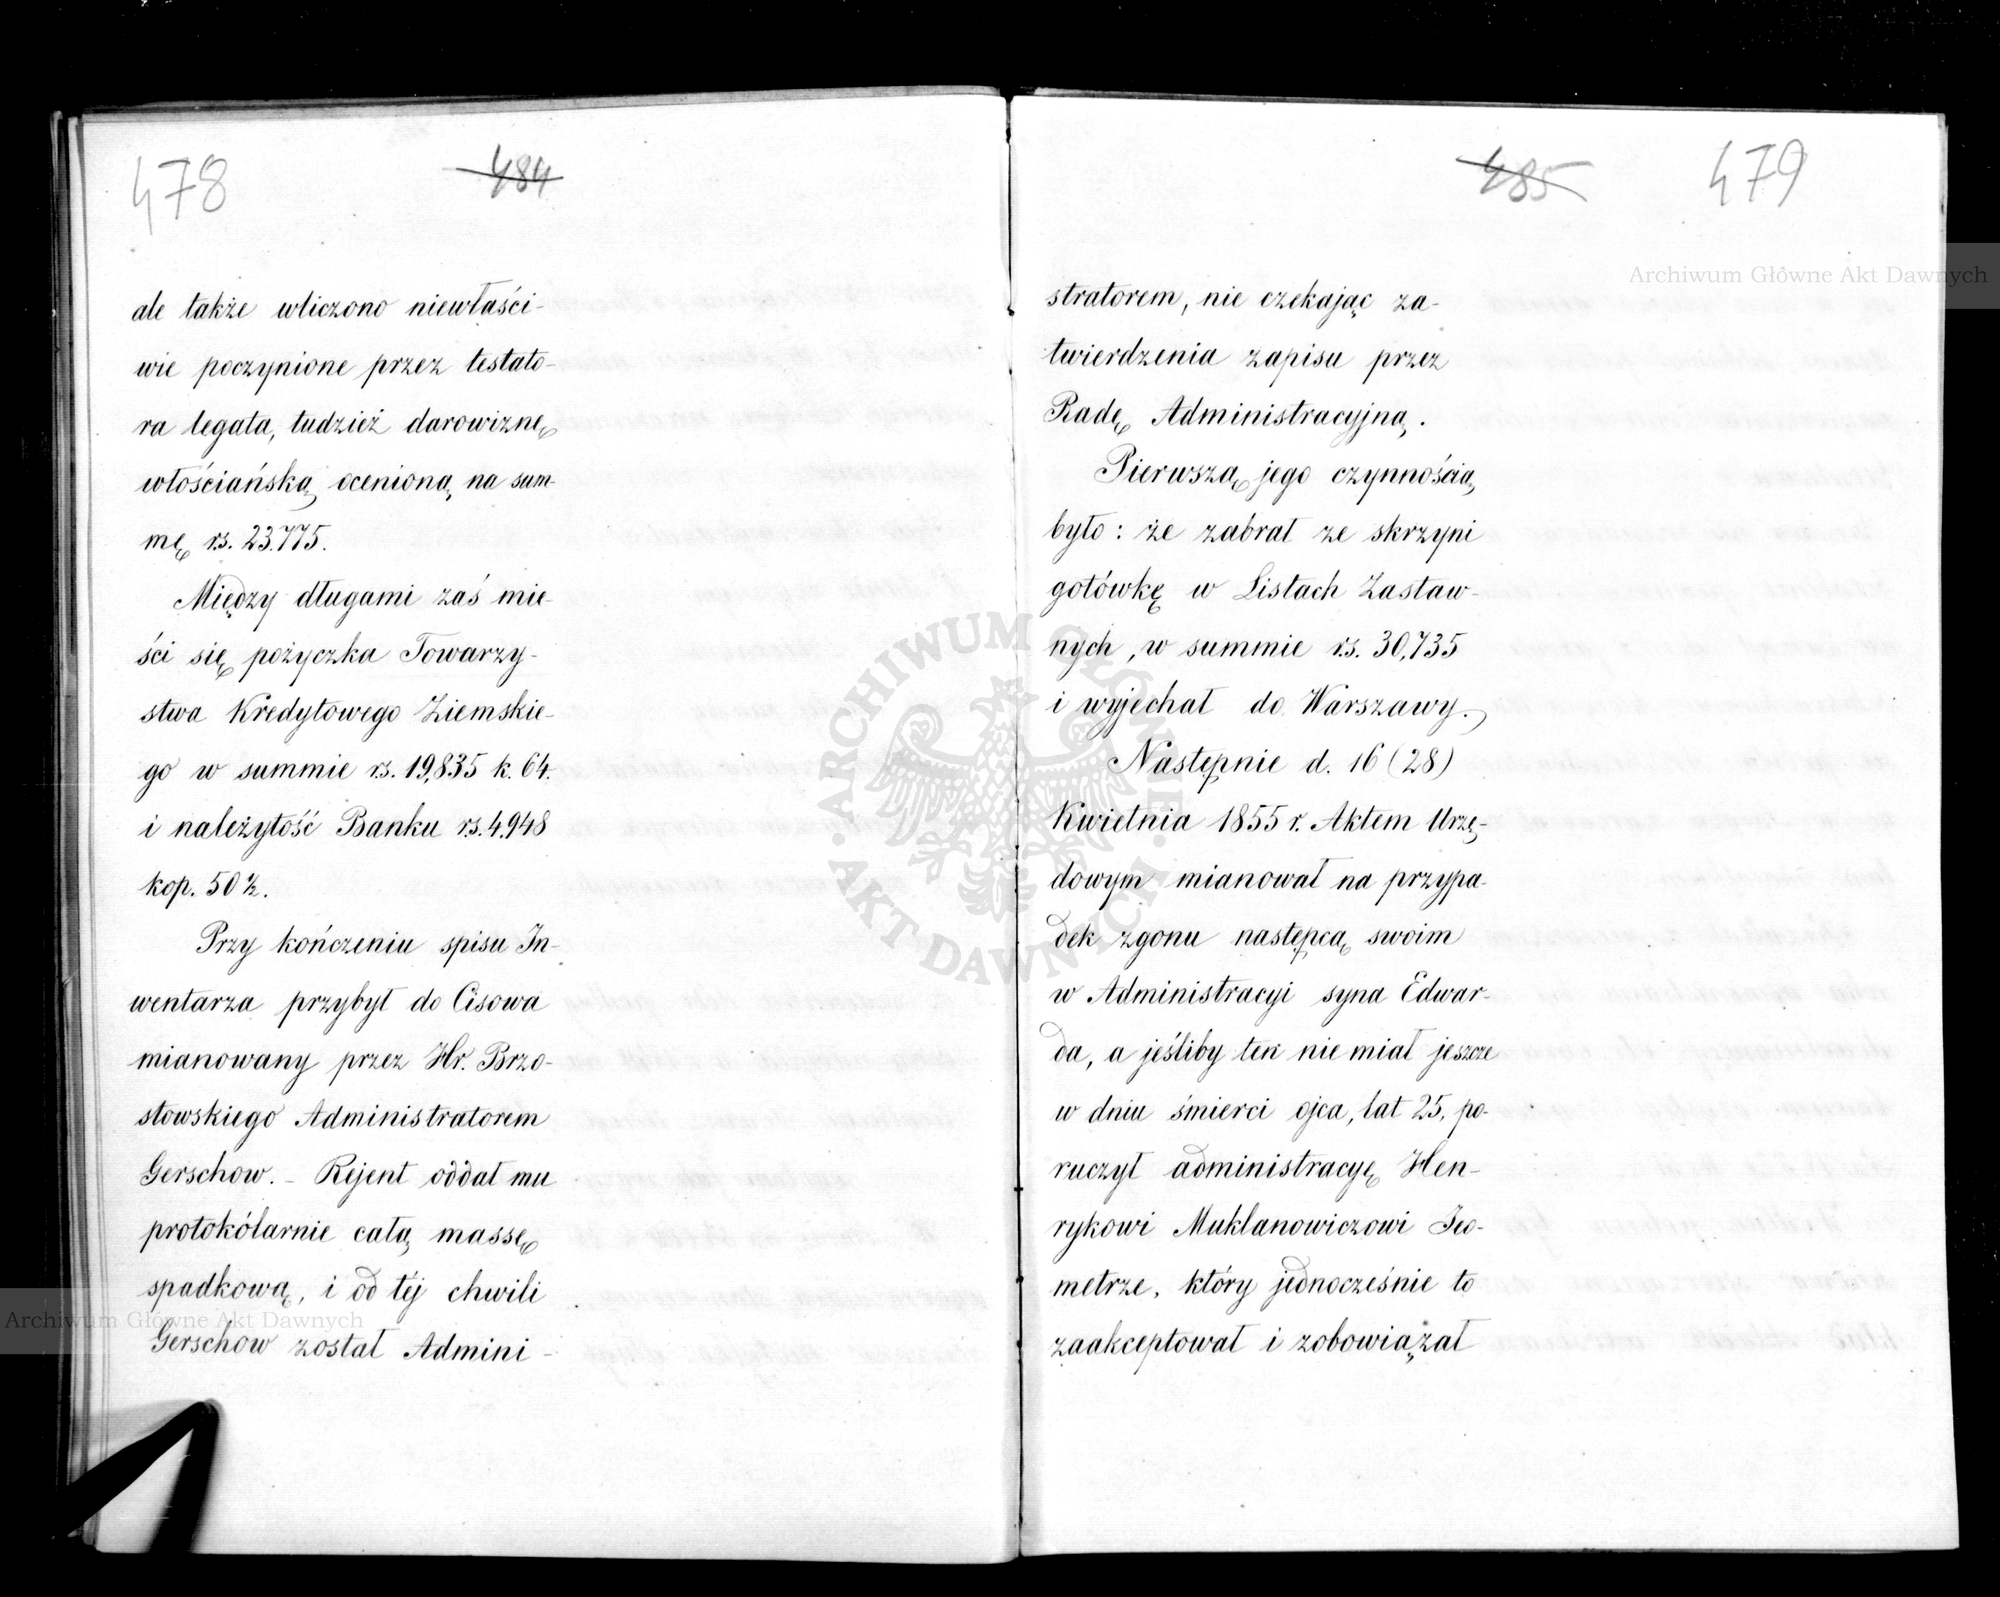 478
484
ale także wliczono niewłaści-
wie poczynione przez testato-
ra legata, tudzież darowiznę
włościańską ocenioną na sum-
mę rs. 23.775.
Między długami zaś mie-
ści się pożyczka Towarzy-
stwa Kredytowego Ziemskie-
go w summie rs. 19,835 k. 64.
i należytość Banku rs. 4.948
kop. 50½.
Przy kończeniu spisu In-
wentarza przybył do Cisowa
mianowany przez Hr. Brzo-
stowskiego Administratorem
Gerschow. - Rejent oddał mu
protokólarnie całą massę
spadkową, i od téj chwili
Gerschow został Admini-
485
479
stratorem, nie czekając za-
twierdzenia zapisu przez
Radę Administracyjną.
Pierwszą jego czynnością
było: że zabrał ze skrzyni
gotówkę w Listach Zastaw-
nych, w summie rs. 30,735
i wyjechał do Warszawy.
Następnie d. 16 (28)
Kwietnia 1855 r. Aktem Urzę-
dowym mianował na przypa-
dek zgonu następcą swoim
w Administracyi syna Edwar-
da, a jeśliby ten nie miał jeszcze
w dniu śmierci ojca, lat 25, po-
ruczył administracyę Hen-
rykowi Muklanowiczowi Jeo-
metrze, który jednocześnie to
zaakceptował i zobowiązał
Archiwum Główne Akt Dawnych
Archiwum Główne Akt Dawnych
ARCHIWUM GŁÓWNE
AKT DAWNYCH